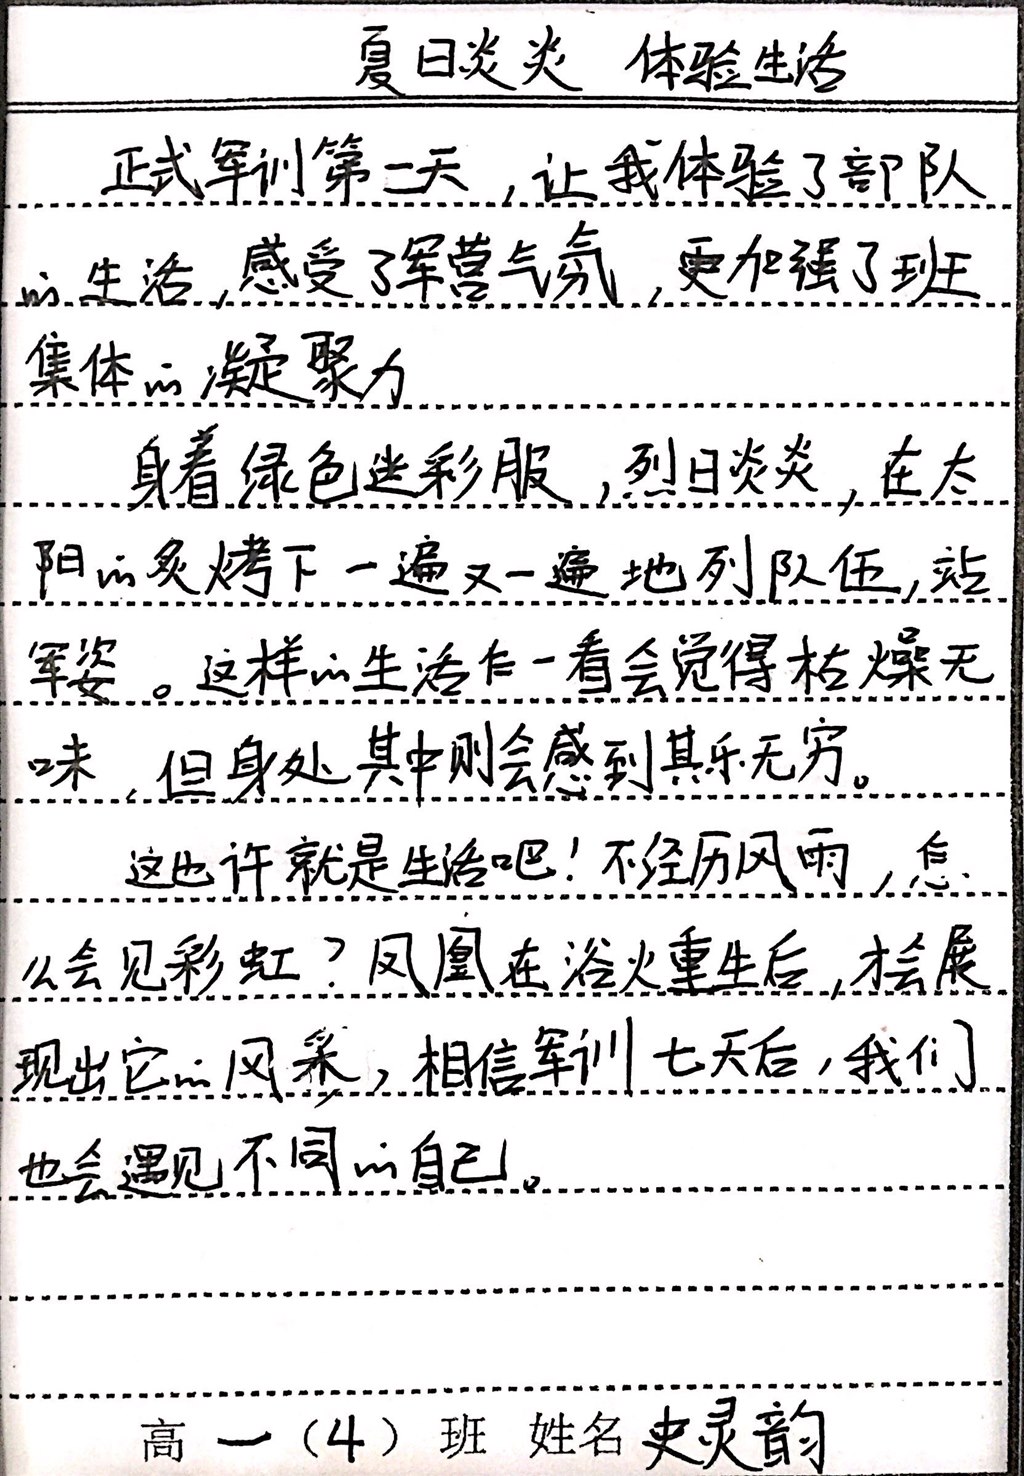 夏日炎炎 体验生活
正式军训第一天，让我体验了部队
的生活，感受了军营气氛，更加强了班
集体的凝聚力
身着绿色迷彩服，烈日炎炎，在太
阳的炙烤下一遍又一遍地列队伍，站
军姿。这样的生活乍一看会觉得枯燥无
味，但身处其中则会感到其乐无穷。
这也许就是生活吧！不经历风雨，怎
么会见彩虹？凤凰在浴火重生后，才会展
现出它的风采，相信军训七天后，我们
也会遇见不同的自己。
高一（4）班 姓名 史灵韵